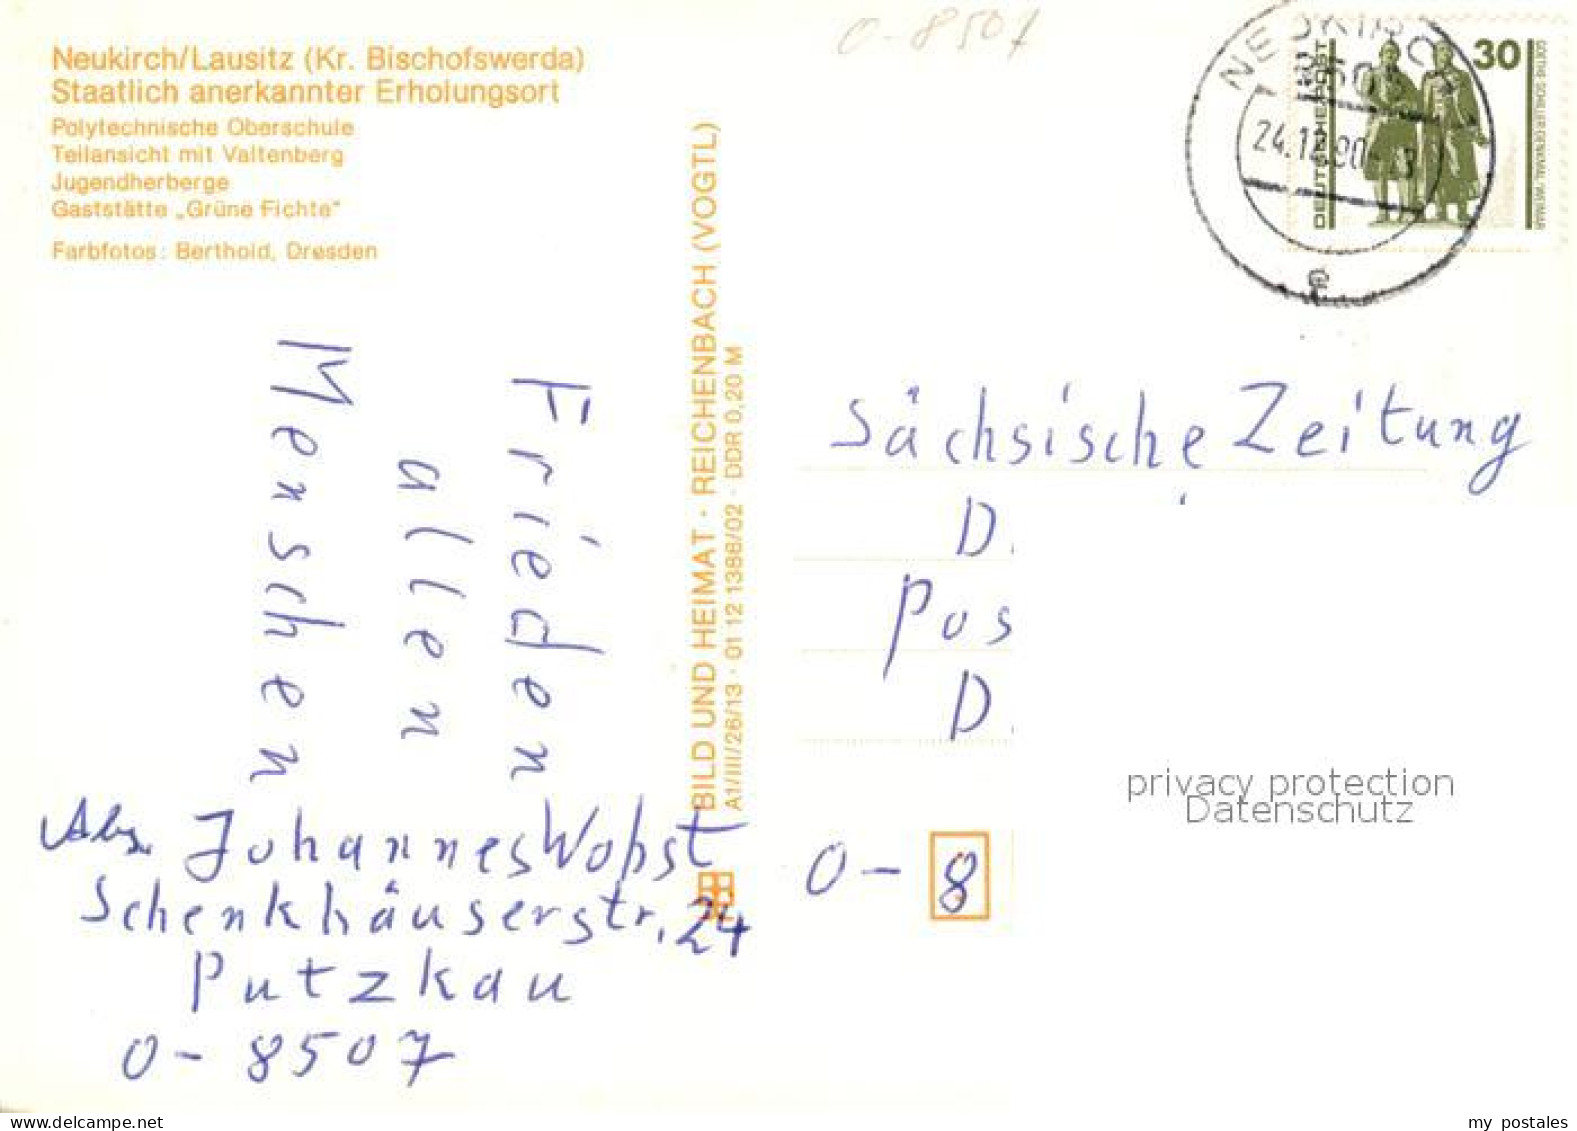 O-8507
Neukirch/Lausitz (Kr. Bischofswerda)
Staatlich anerkannter Erholungsort
Polytechnische Oberschule
Teilansicht mit Valtenberg
Jugendherberge
Gaststätte „Grüne Fichte“
Farbfotos: Berthold, Dresden
Frieden
allen
Menschen
Abs. Johannes Wobst
Schenkhäuserstr. 24
Putzkau
O-8507
BILD UND HEIMAT · REICHENBACH (VOGTL)
A1/III/26/13 · 01 12 1386/02 · DDR 0,20 M
NEUKIRCH
24.12.90
e
30
DEUTSCHE POST
GOETHE-SCHILLER-DENKMAL/WEIMAR
Sächsische Zeitung
D.
Pos
D.
O-8
privacy protection
Datenschutz
www.delcampe.net
my_postales